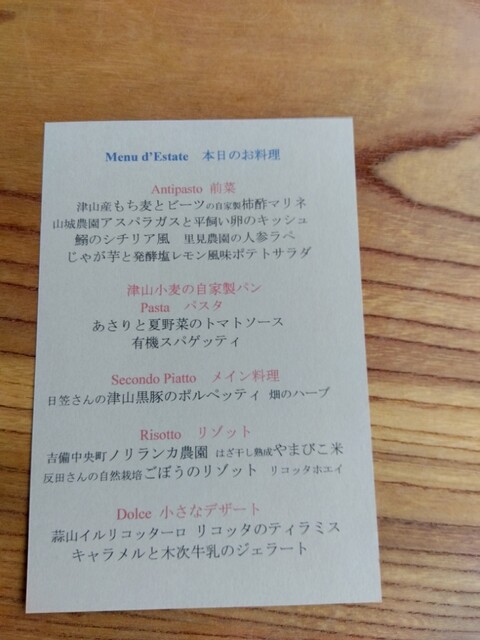 Menu d'Estate 本日のお料理
Antipasto 前菜
津山産もち麦とビーツの自家製柿酢マリネ
山城農園アスパラガスと平飼い卵のキッシュ
鰯のシチリア風 里見農園の人参ラペ
じゃが芋と発酵塩レモン風味ポテトサラダ
津山小麦の自家製パン
Pasta パスタ
あさりと夏野菜のトマトソース
有機スパゲッティ
Secondo Piatto メイン料理
日笠さんの津山黒豚のポルペッティ 畑のハーブ
Risotto リゾット
吉備中央町ノリランカ農園 はざ干し熟成やまびこ米
反田さんの自然栽培ごぼうのリゾット リコッタホエイ
Dolce 小さなデザート
蒜山イルリコッターロ リコッタのティラミス
キャラメルと木次牛乳のジェラート